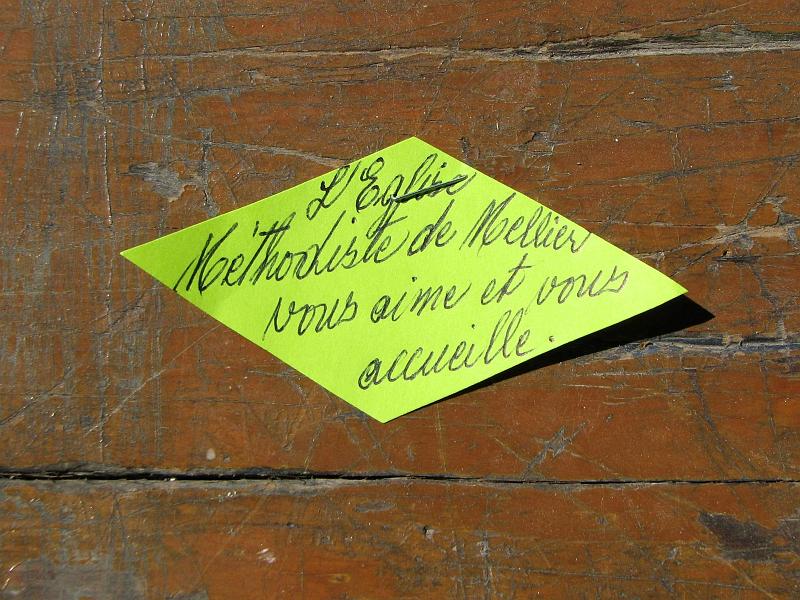 L'Eglise
Méthodiste de Mellier
vous aime et vous
accueille.